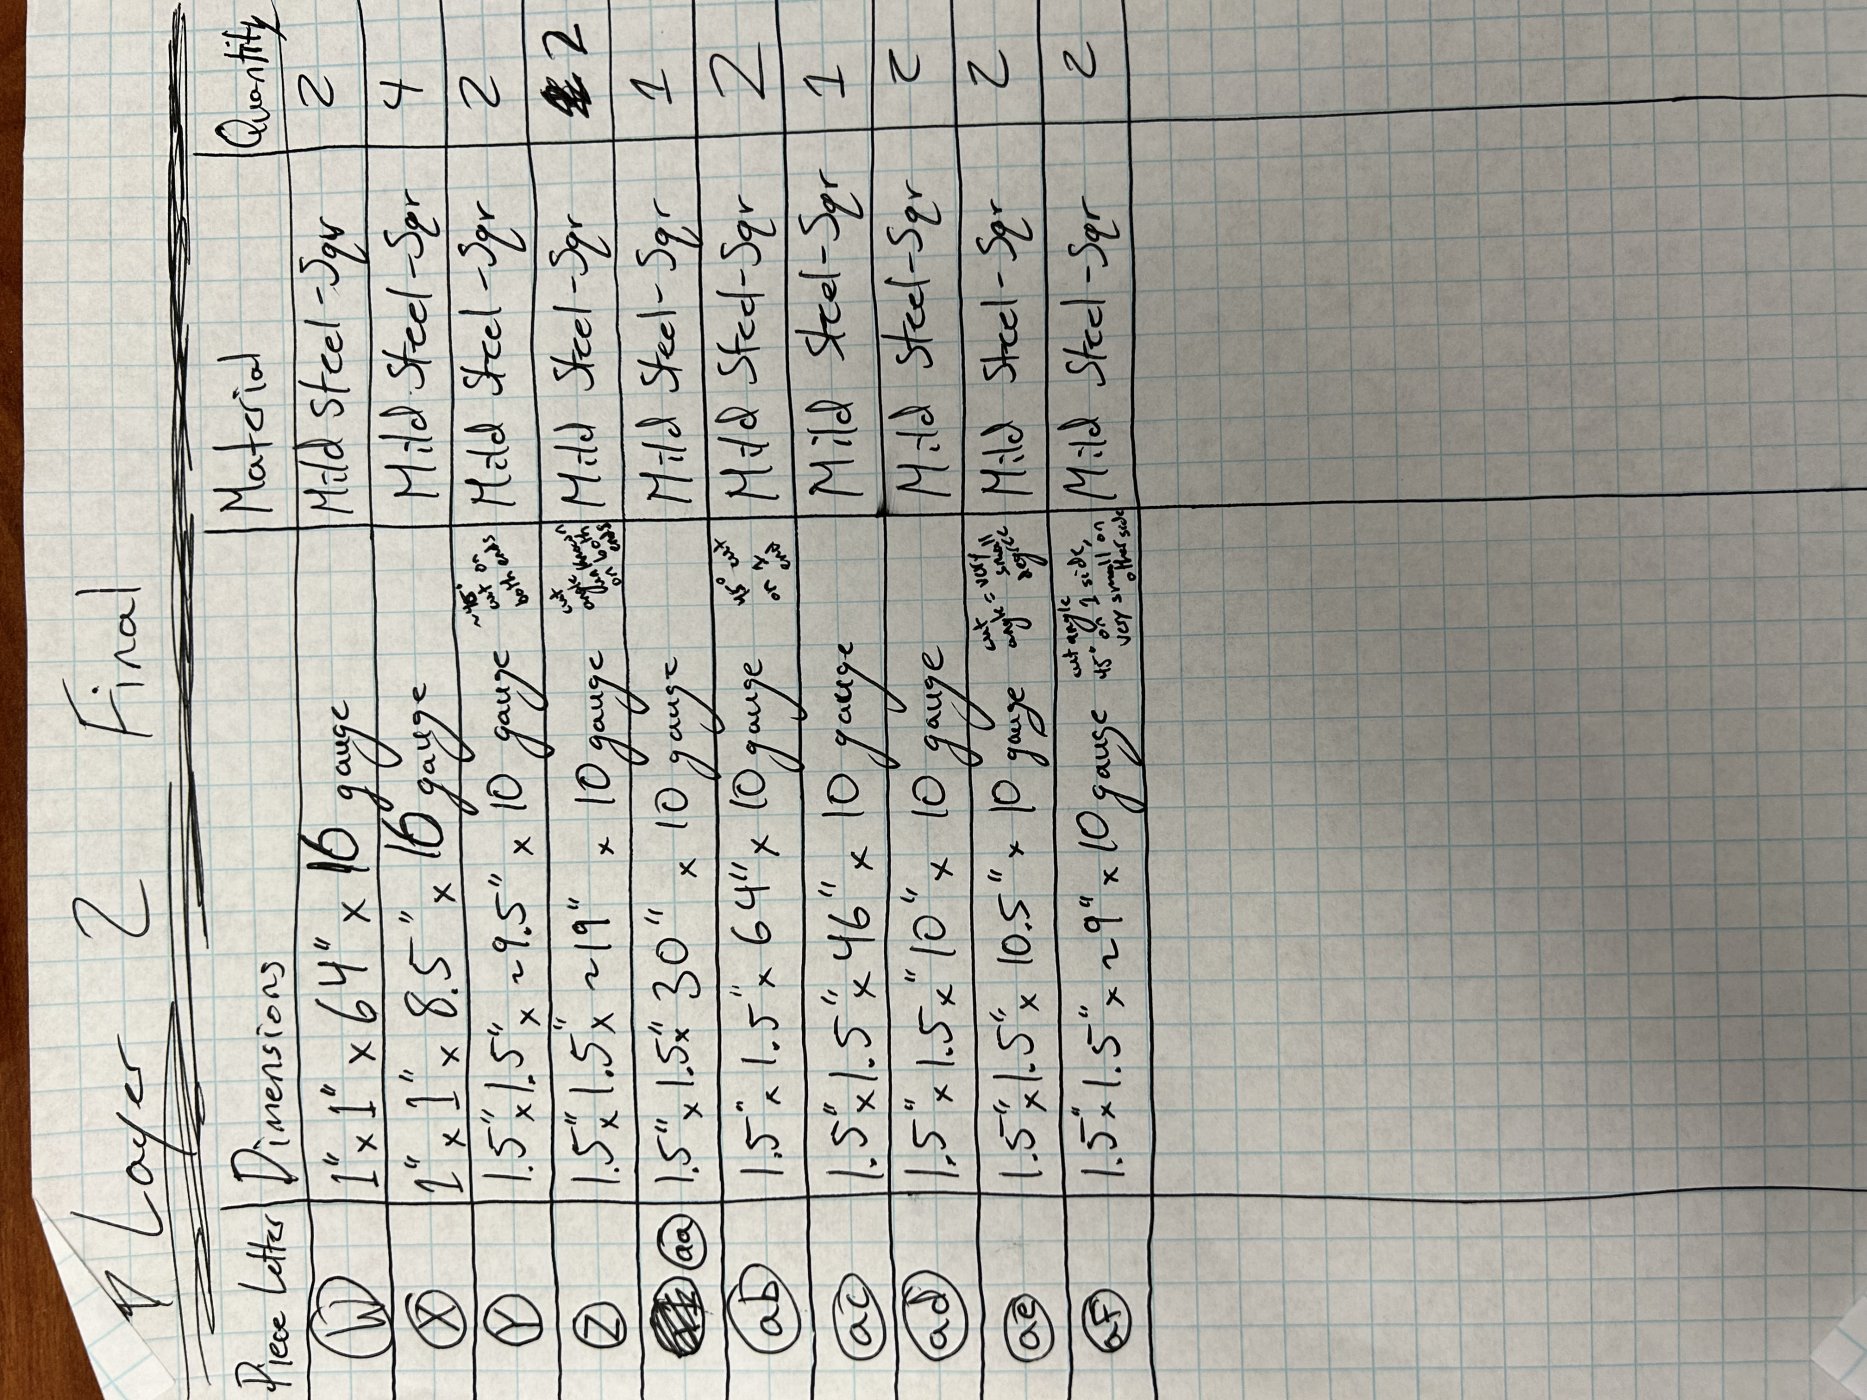 Layer 2 Final
Piece Letter Dimensions Material Quantity
W 1" x 1" x 64" x 16 gauge Mild Steel-Sqr 2
X 1" x 1" x 8.5" x 16 gauge Mild Steel-Sqr 4
Y 1.5" x 1.5" x ~9.5" x 10 gauge ~45° cut on both ends Mild Steel-Sqr 2
Z 1.5" x 1.5" x ~19" x 10 gauge cut angle on both ends Mild Steel-Sqr 2
aa 1.5" x 1.5" x 30" x 10 gauge Mild Steel-Sqr 1
ab 1.5" x 1.5" x 64" x 10 gauge 45° cut on 1 end Mild Steel-Sqr 2
ac 1.5" x 1.5" x 46" x 10 gauge Mild Steel-Sqr 1
ad 1.5" x 1.5" x 10" x 10 gauge Mild Steel-Sqr 2
ae 1.5" x 1.5" x 10.5" x 10 gauge cut angle = very small Mild Steel-Sqr 2
af 1.5" x 1.5" x ~9" x 10 gauge cut angle 45° on 1 side, very small on other side Mild Steel-Sqr 2